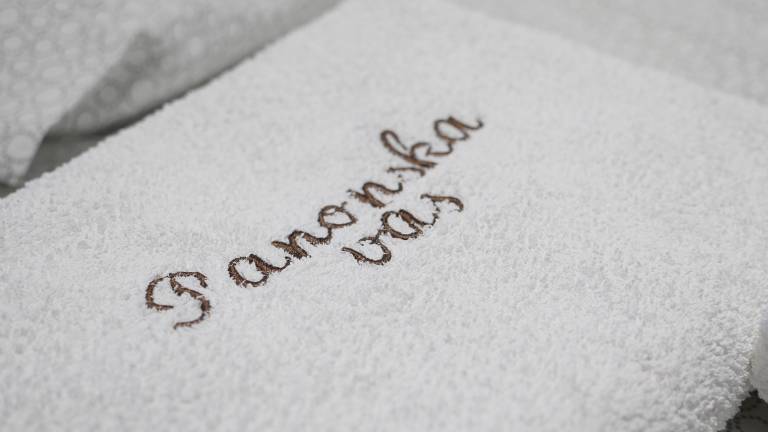 Panonska
vas